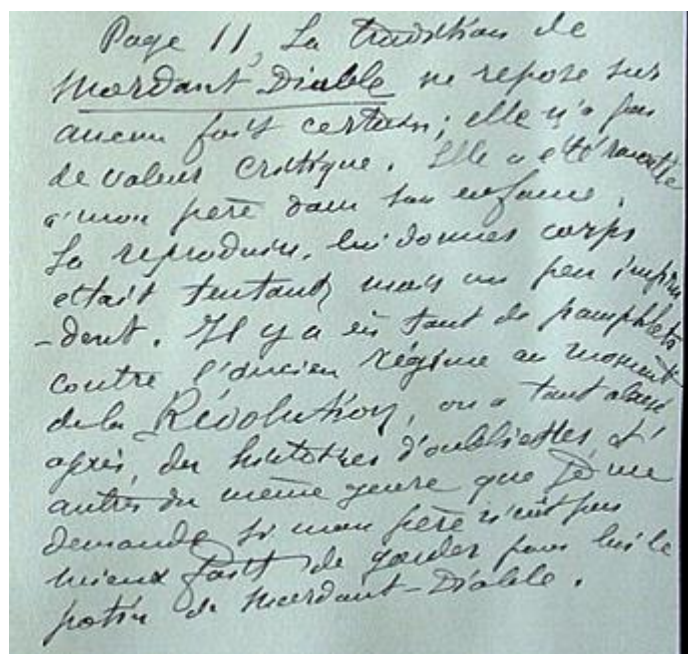 Page 11, La tradition de
Mordant Diable ne repose sur
aucun fait certain; elle n'a pas
de valeur critique. Elle a été racontée
à mon père dans son enfance.
La reproduire, lui donner corps
était tentant mais un peu impru
-dent. Il y a eu tant de pamphlets
contre l'ancien régime au moment
de la Révolution, on a tant abusé
après, des histoires d'oubliettes et
autres du même genre que je me
demande si mon père n'eût pas
mieux fait de garder pour lui le
potin de Mordant-Diable.